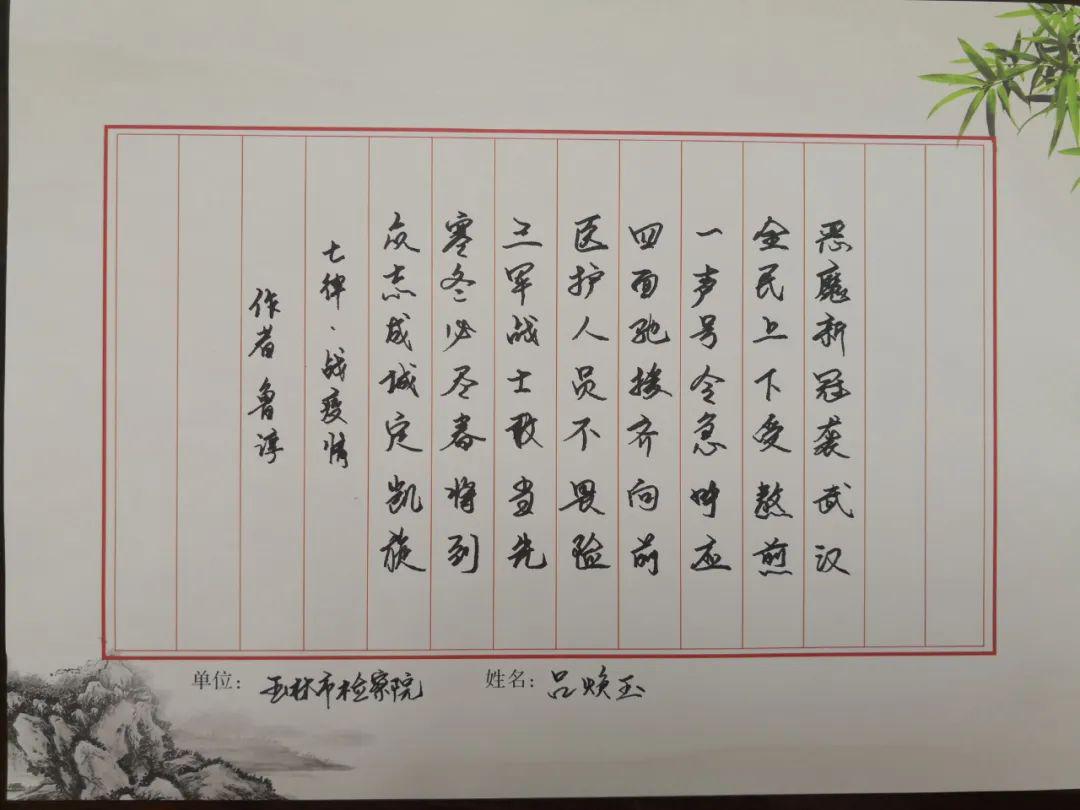 恶魔新冠袭武汉
全民上下受熬煎
一声号令急呼应
四面驰援齐向前
医护人员不畏险
三军战士敢当先
寒冬必尽春将到
众志成城定凯旋
七律·战疫情
作者 鲁谆
单位：玉林市检察院 姓名：吕焕玉